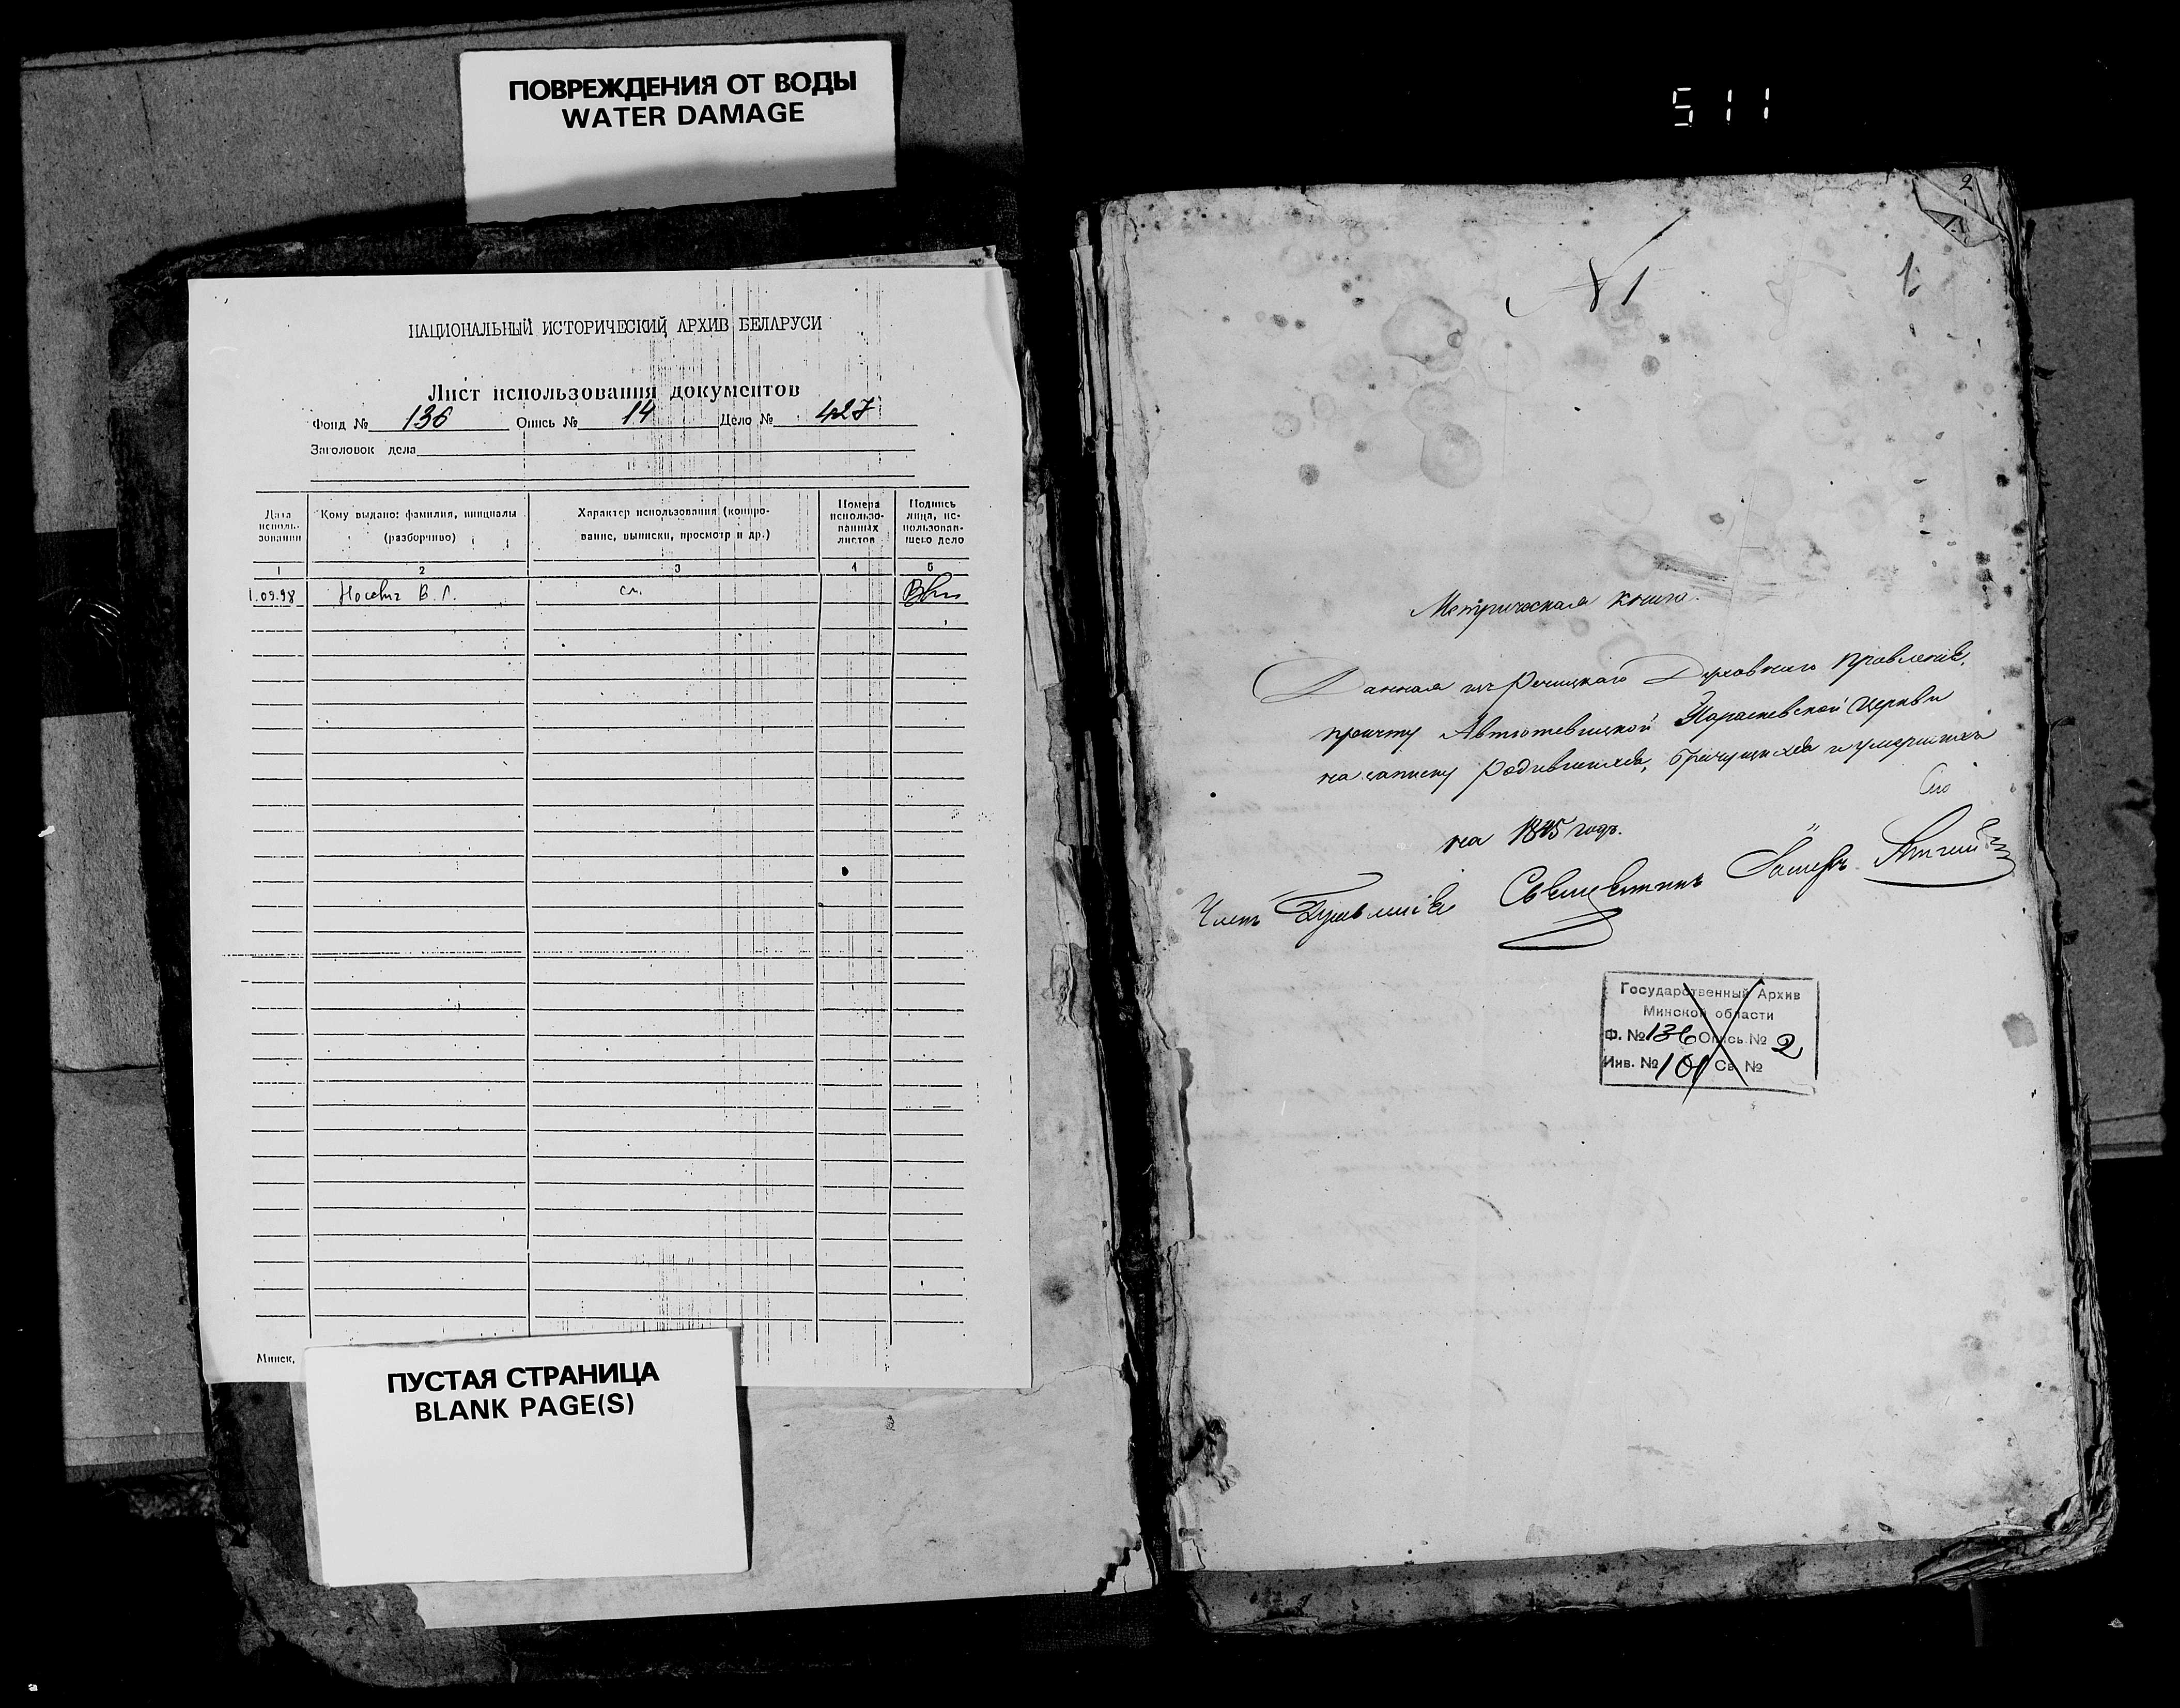 ПОВРЕЖДЕНИЯ ОТ ВОДЫ
WATER DAMAGE
511
НАЦИОНАЛЬНЫЙ ИСТОРИЧЕСКИЙ АРХИВ БЕЛАРУСИ
Лист использования документов
Фонд № 136 Опись № 14 Дело № 427
Заголовок дела
Дата исполь-зования
Кому выдано: фамилия, инициалы (разборчиво)
Характер использования (копиро-вание, выписки, просмотр и др.)
Номера использо-ванных листов
Подпись лица, ис-пользовав-шего дело
1 2 3 4 5
1.09.98 Носевич В. Л. см.
Минск,
ПУСТАЯ СТРАНИЦА
BLANK PAGE(S)
2
1
№ 1
Метрическая книга.
Данная изъ Речицкаго Духовнаго Правленія,
причту Автютевицкой Параскевской Церкви
на записку родившихся, брачущихся и умершихъ
на 1845 годъ.
Членъ Правленія Священникъ
Государственный Архив
Минской области
Ф. № 136 Опись № 2
Инв. № 101 Св. №